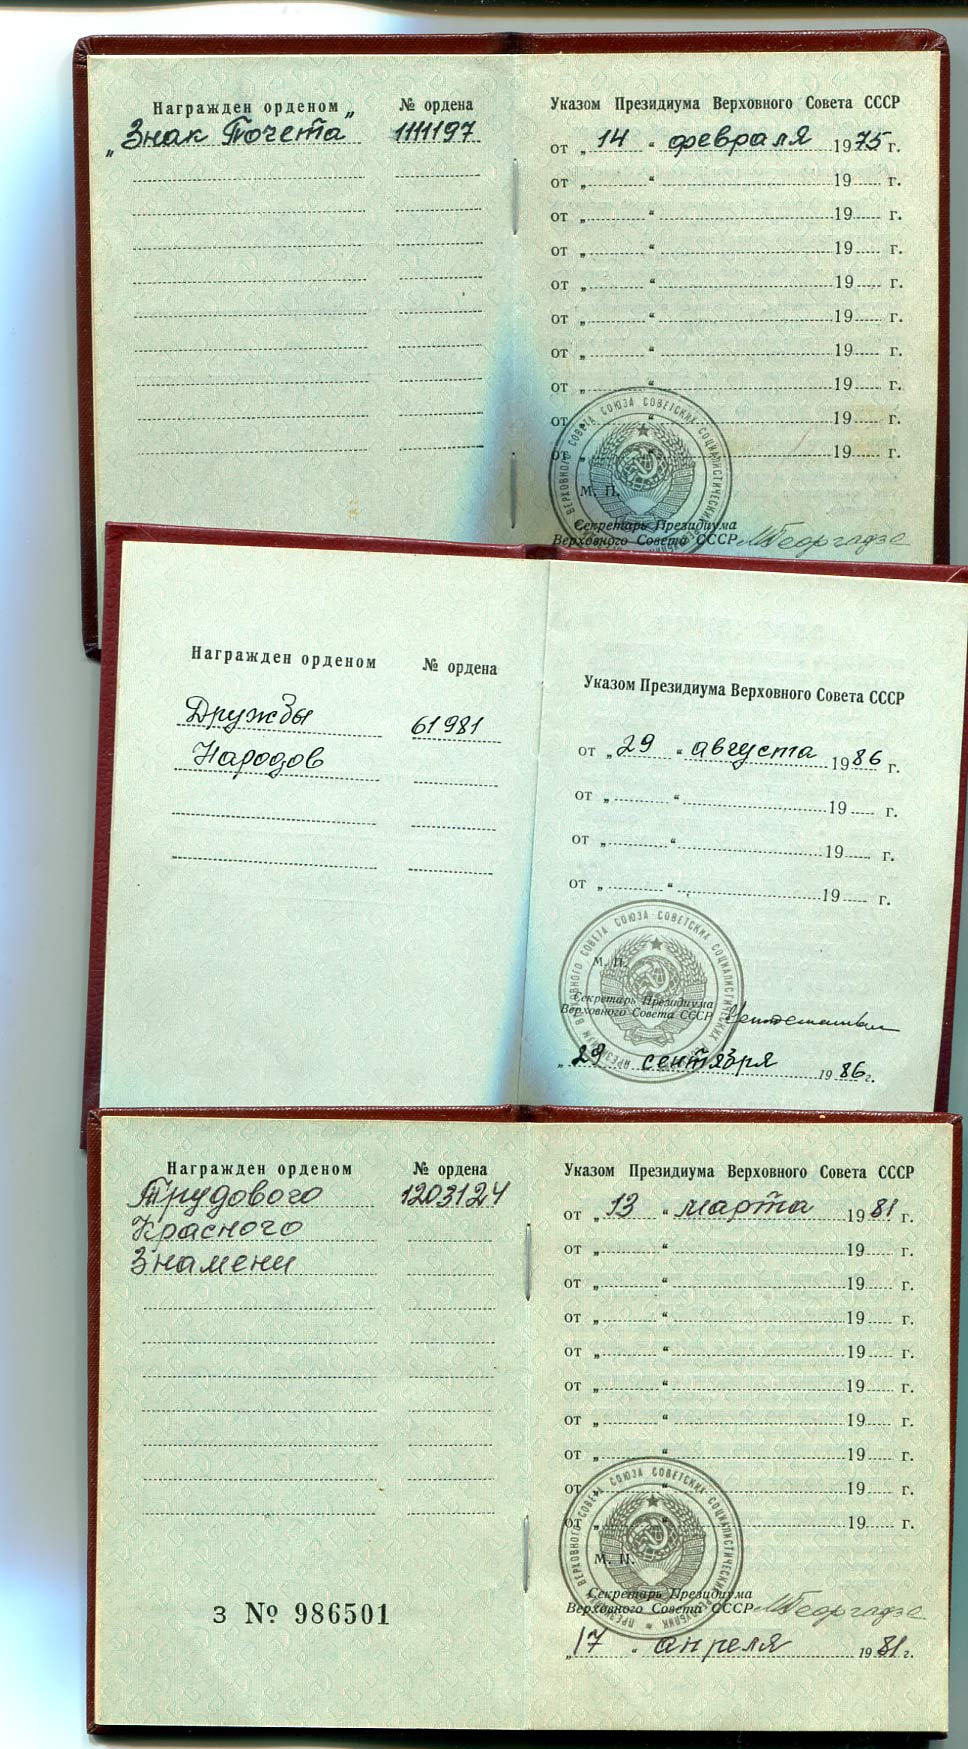 Награжден орденом № ордена Указом Президиума Верховного Совета СССР
„Знак Почета” 1111197 от „14“ февраля 1975 г.
от „ “ 19 г.
от „ “ 19 г.
от „ “ 19 г.
от „ “ 19 г.
от „ “ 19 г.
от „ “ 19 г.
от „ “ 19 г.
от „ “ 19 г.
от „ “ 19 г.
ВЕРХОВНОГО СОВЕТА СОЮЗА СОВЕТСКИХ СОЦИАЛИСТИЧЕСКИХ
М. П.
Секретарь Президиума
Верховного Совета СССР МГеоргадзе
Награжден орденом № ордена Указом Президиума Верховного Совета СССР
Дружбы 61981 от „29“ августа 1986 г.
Народов от „ “ 19 г.
от „ “ 19 г.
от „ “ 19 г.
ПРЕЗИДИУМ ВЕРХОВНОГО СОВЕТА СОЮЗА СОВЕТСКИХ СОЦИАЛИСТИЧЕСКИХ РЕСПУБЛИК
М. П.
Секретарь Президиума
Верховного Совета СССР
„29 сентября 1986 г.
Награжден орденом № ордена Указом Президиума Верховного Совета СССР
Трудового 1203124 от „13“ марта 1981 г.
Красного от „ “ 19 г.
Знамени от „ “ 19 г.
от „ “ 19 г.
от „ “ 19 г.
от „ “ 19 г.
от „ “ 19 г.
от „ “ 19 г.
от „ “ 19 г.
от „ “ 19 г.
ПРЕЗИДИУМ ВЕРХОВНОГО СОВЕТА СОЮЗА СОВЕТСКИХ СОЦИАЛИСТИЧЕСКИХ РЕСПУБЛИК
М. П.
Секретарь Президиума
Верховного Совета СССР МГеоргадзе
З № 986501
„17“ апреля 1981 г.